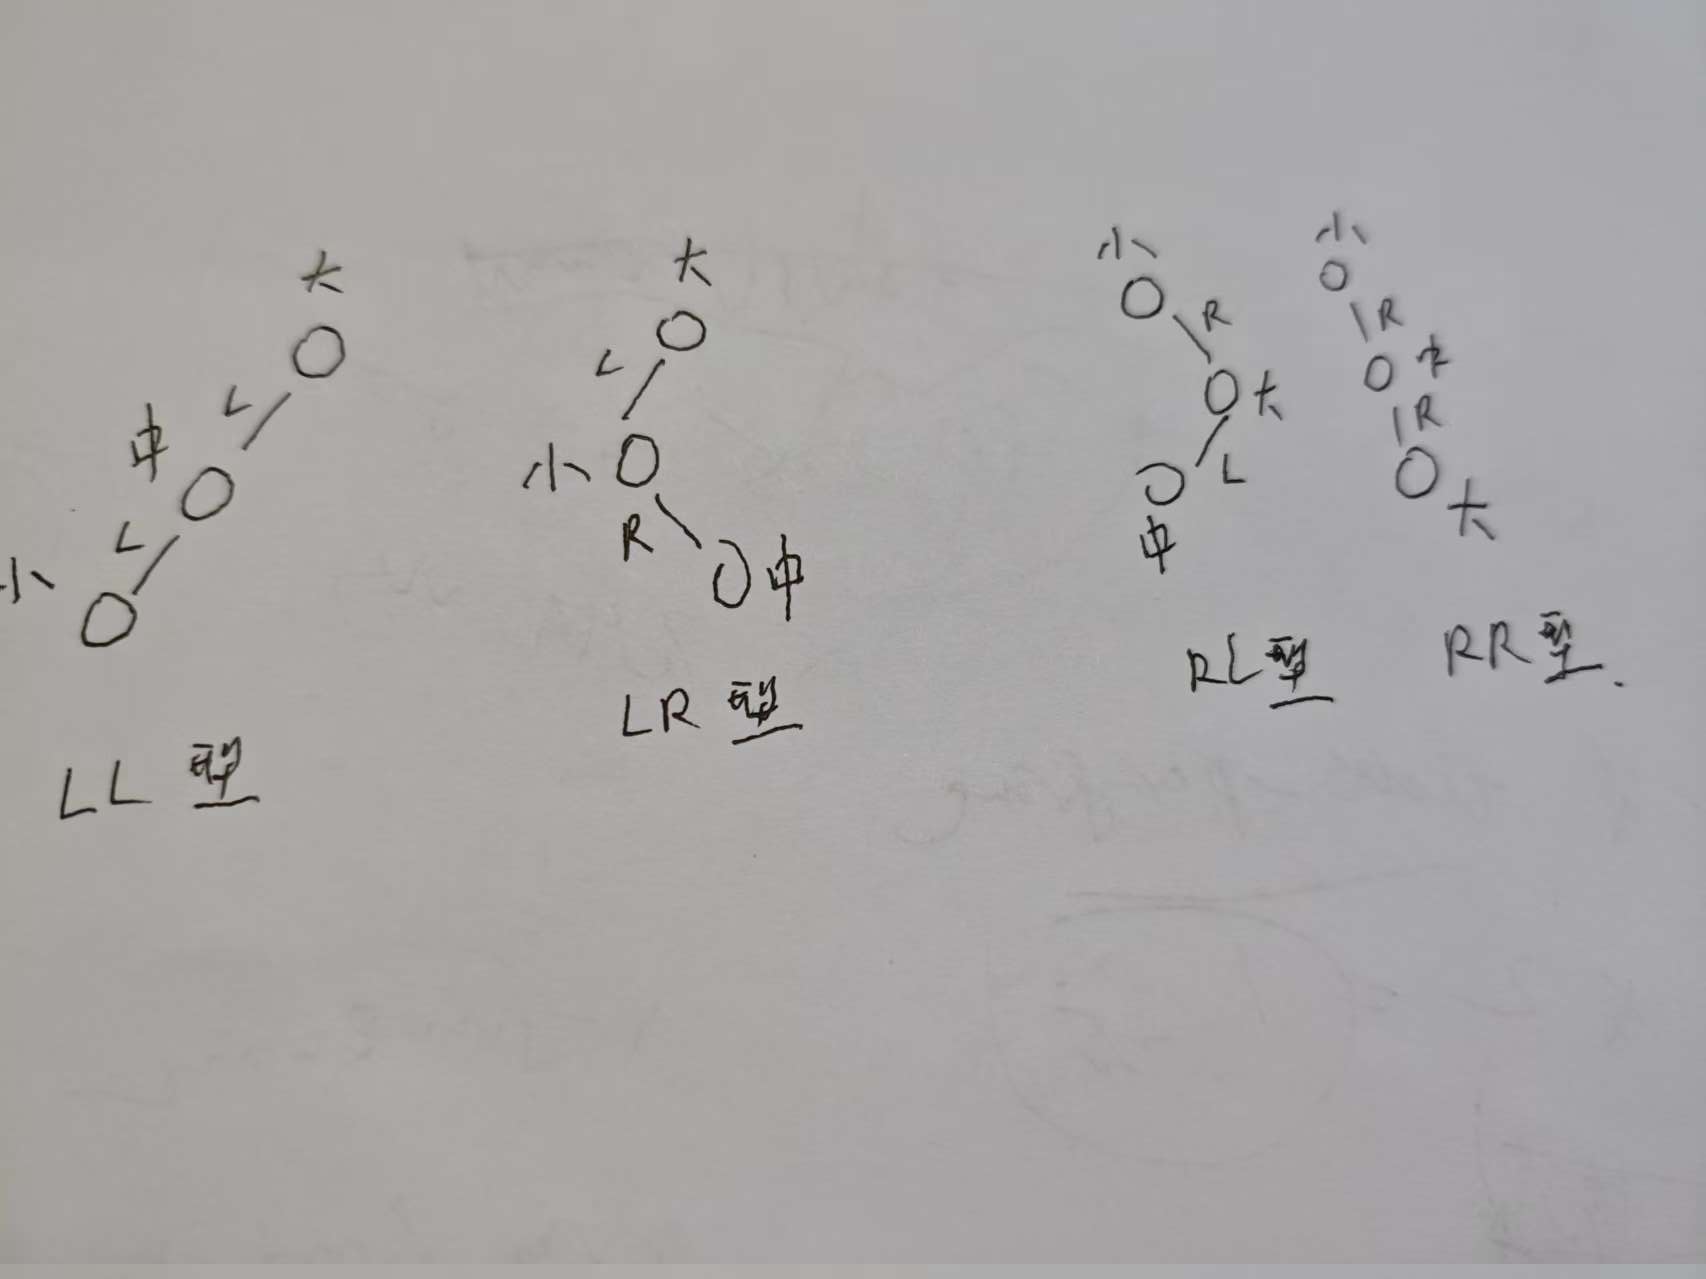 大
L
中
L
小
LL 型
大
L
小
R
中
LR 型
小
R
大
L
中
RL型
小
R
中
R
大
RR型.